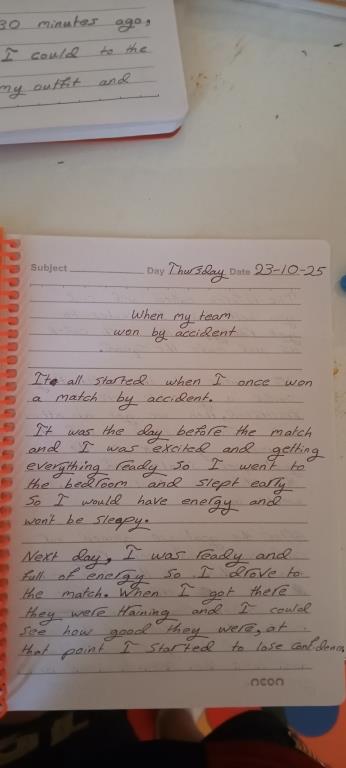 30 minutes ago,
I could to the
my outfit and
Subject Day Thursday Date 23-10-25
When my team
won by accident
It all started when I once won
a match by accident.
It was the day before the match
and I was excited and getting
everything ready so I went to
the bedroom and slept early
So I would have energy and
won't be sleepy.
Next day, I was ready and
full of energy so I drove to
the match. When I got there
they were training and I could
see how good they were, at
that point I started to lose confidence
neon